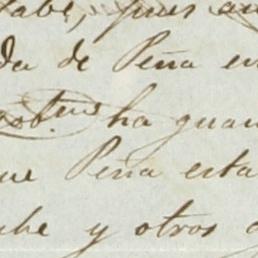 sabe, pues
da de Peña en
ha guan
ue Peña esta
che y otros